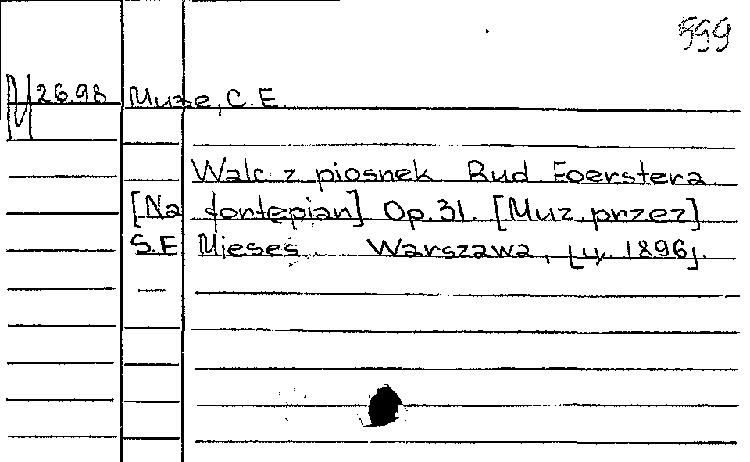 599
M 26.98 Muze, C. E.
Walc z piosnek Rud Foerstera
[Na fortepian] Op. 31. [Muz. przez]
S.E Mieses. Warszawa, [1896].